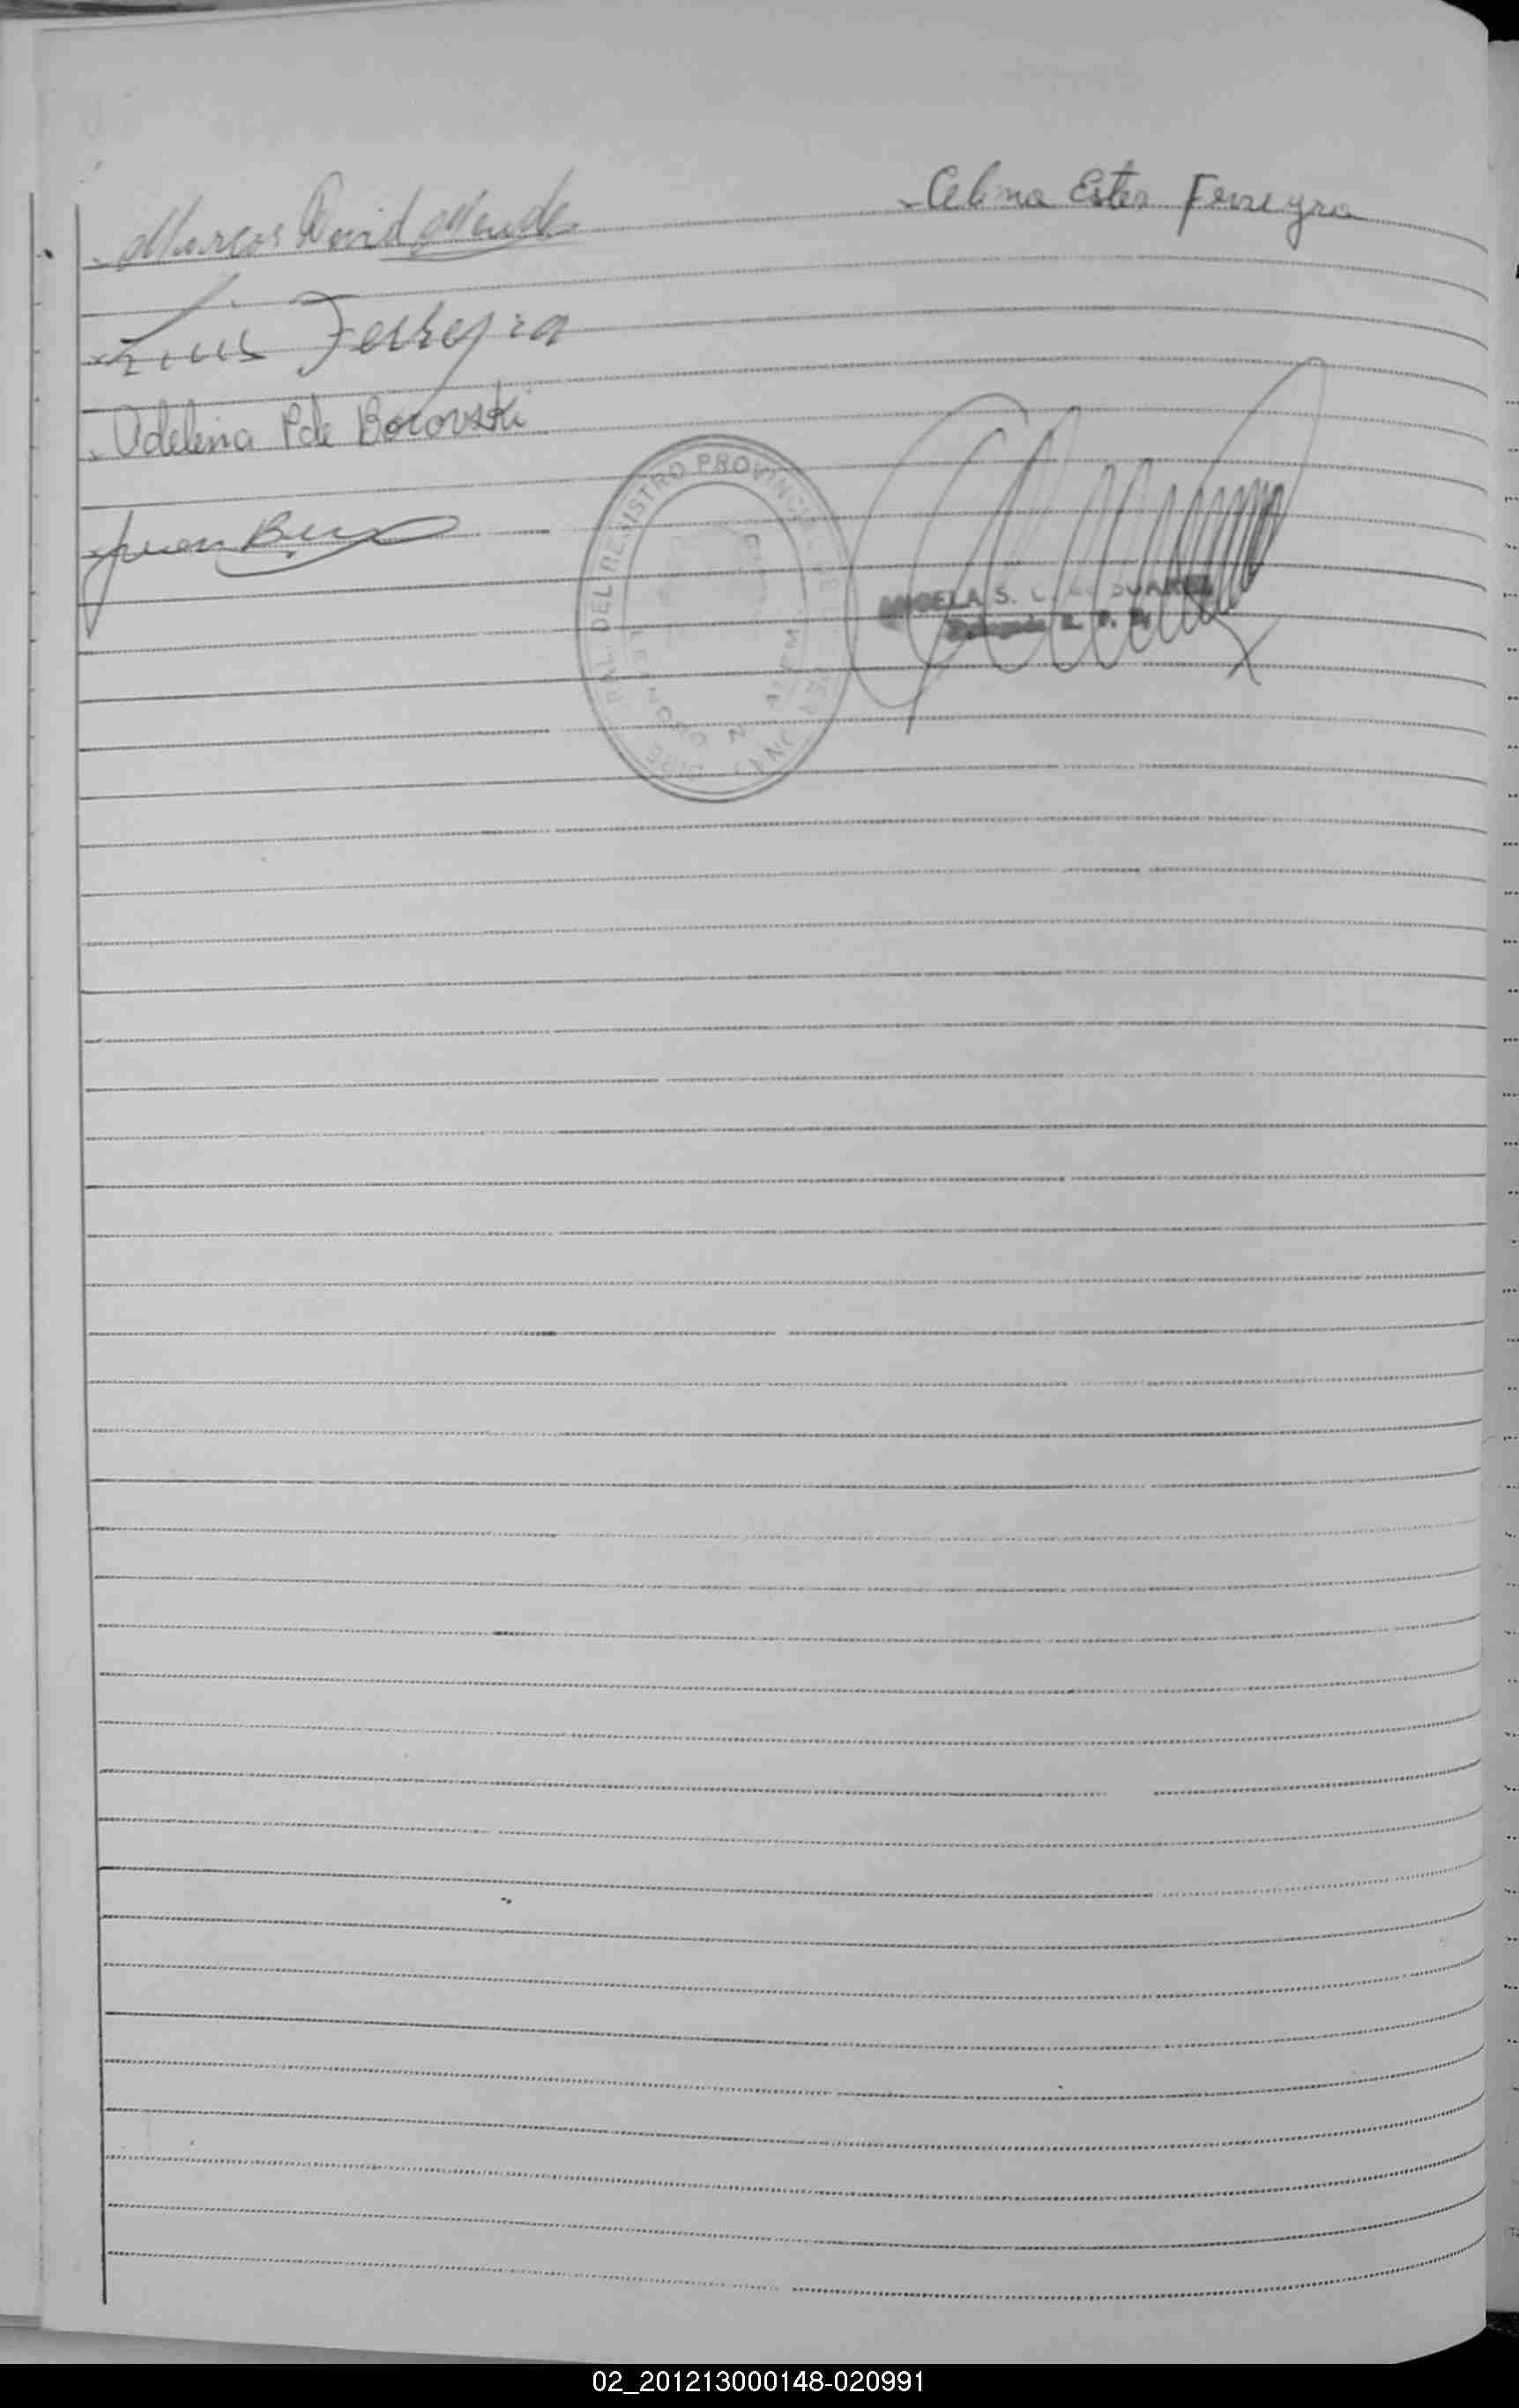 Marcos David Mende
Celima Ester Ferreyra
Luis Ferreyra
Adelina P de Borovski
Juan
DEL REGISTRO PROVINC
LEANDRO N. ALEM
ANGELA S. C. de SUAREZ
02_201213000148-020991